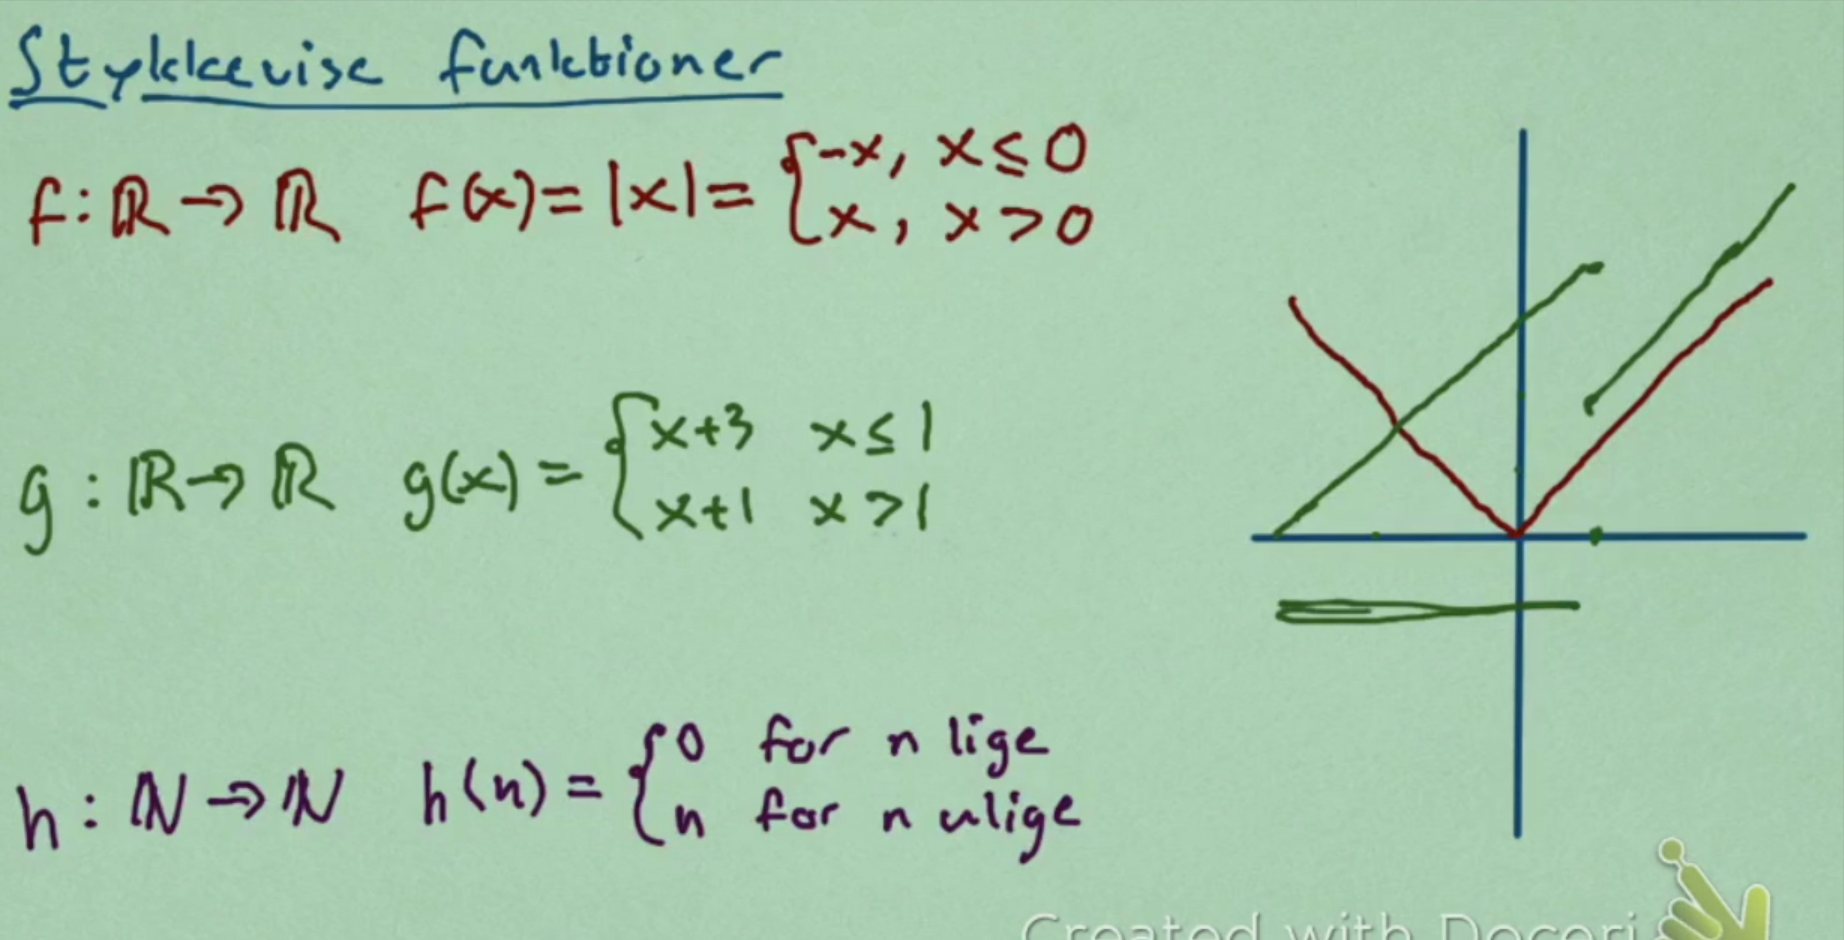 Stykkevise funktioner
f: ℝ → ℝ f(x) = |x| = { -x, x ≤ 0
x, x > 0
g: ℝ → ℝ g(x) = { x+3 x ≤ 1
x+1 x > 1
h: ℕ → ℕ h(n) = { 0 for n lige
n for n ulige
Created with Doceri